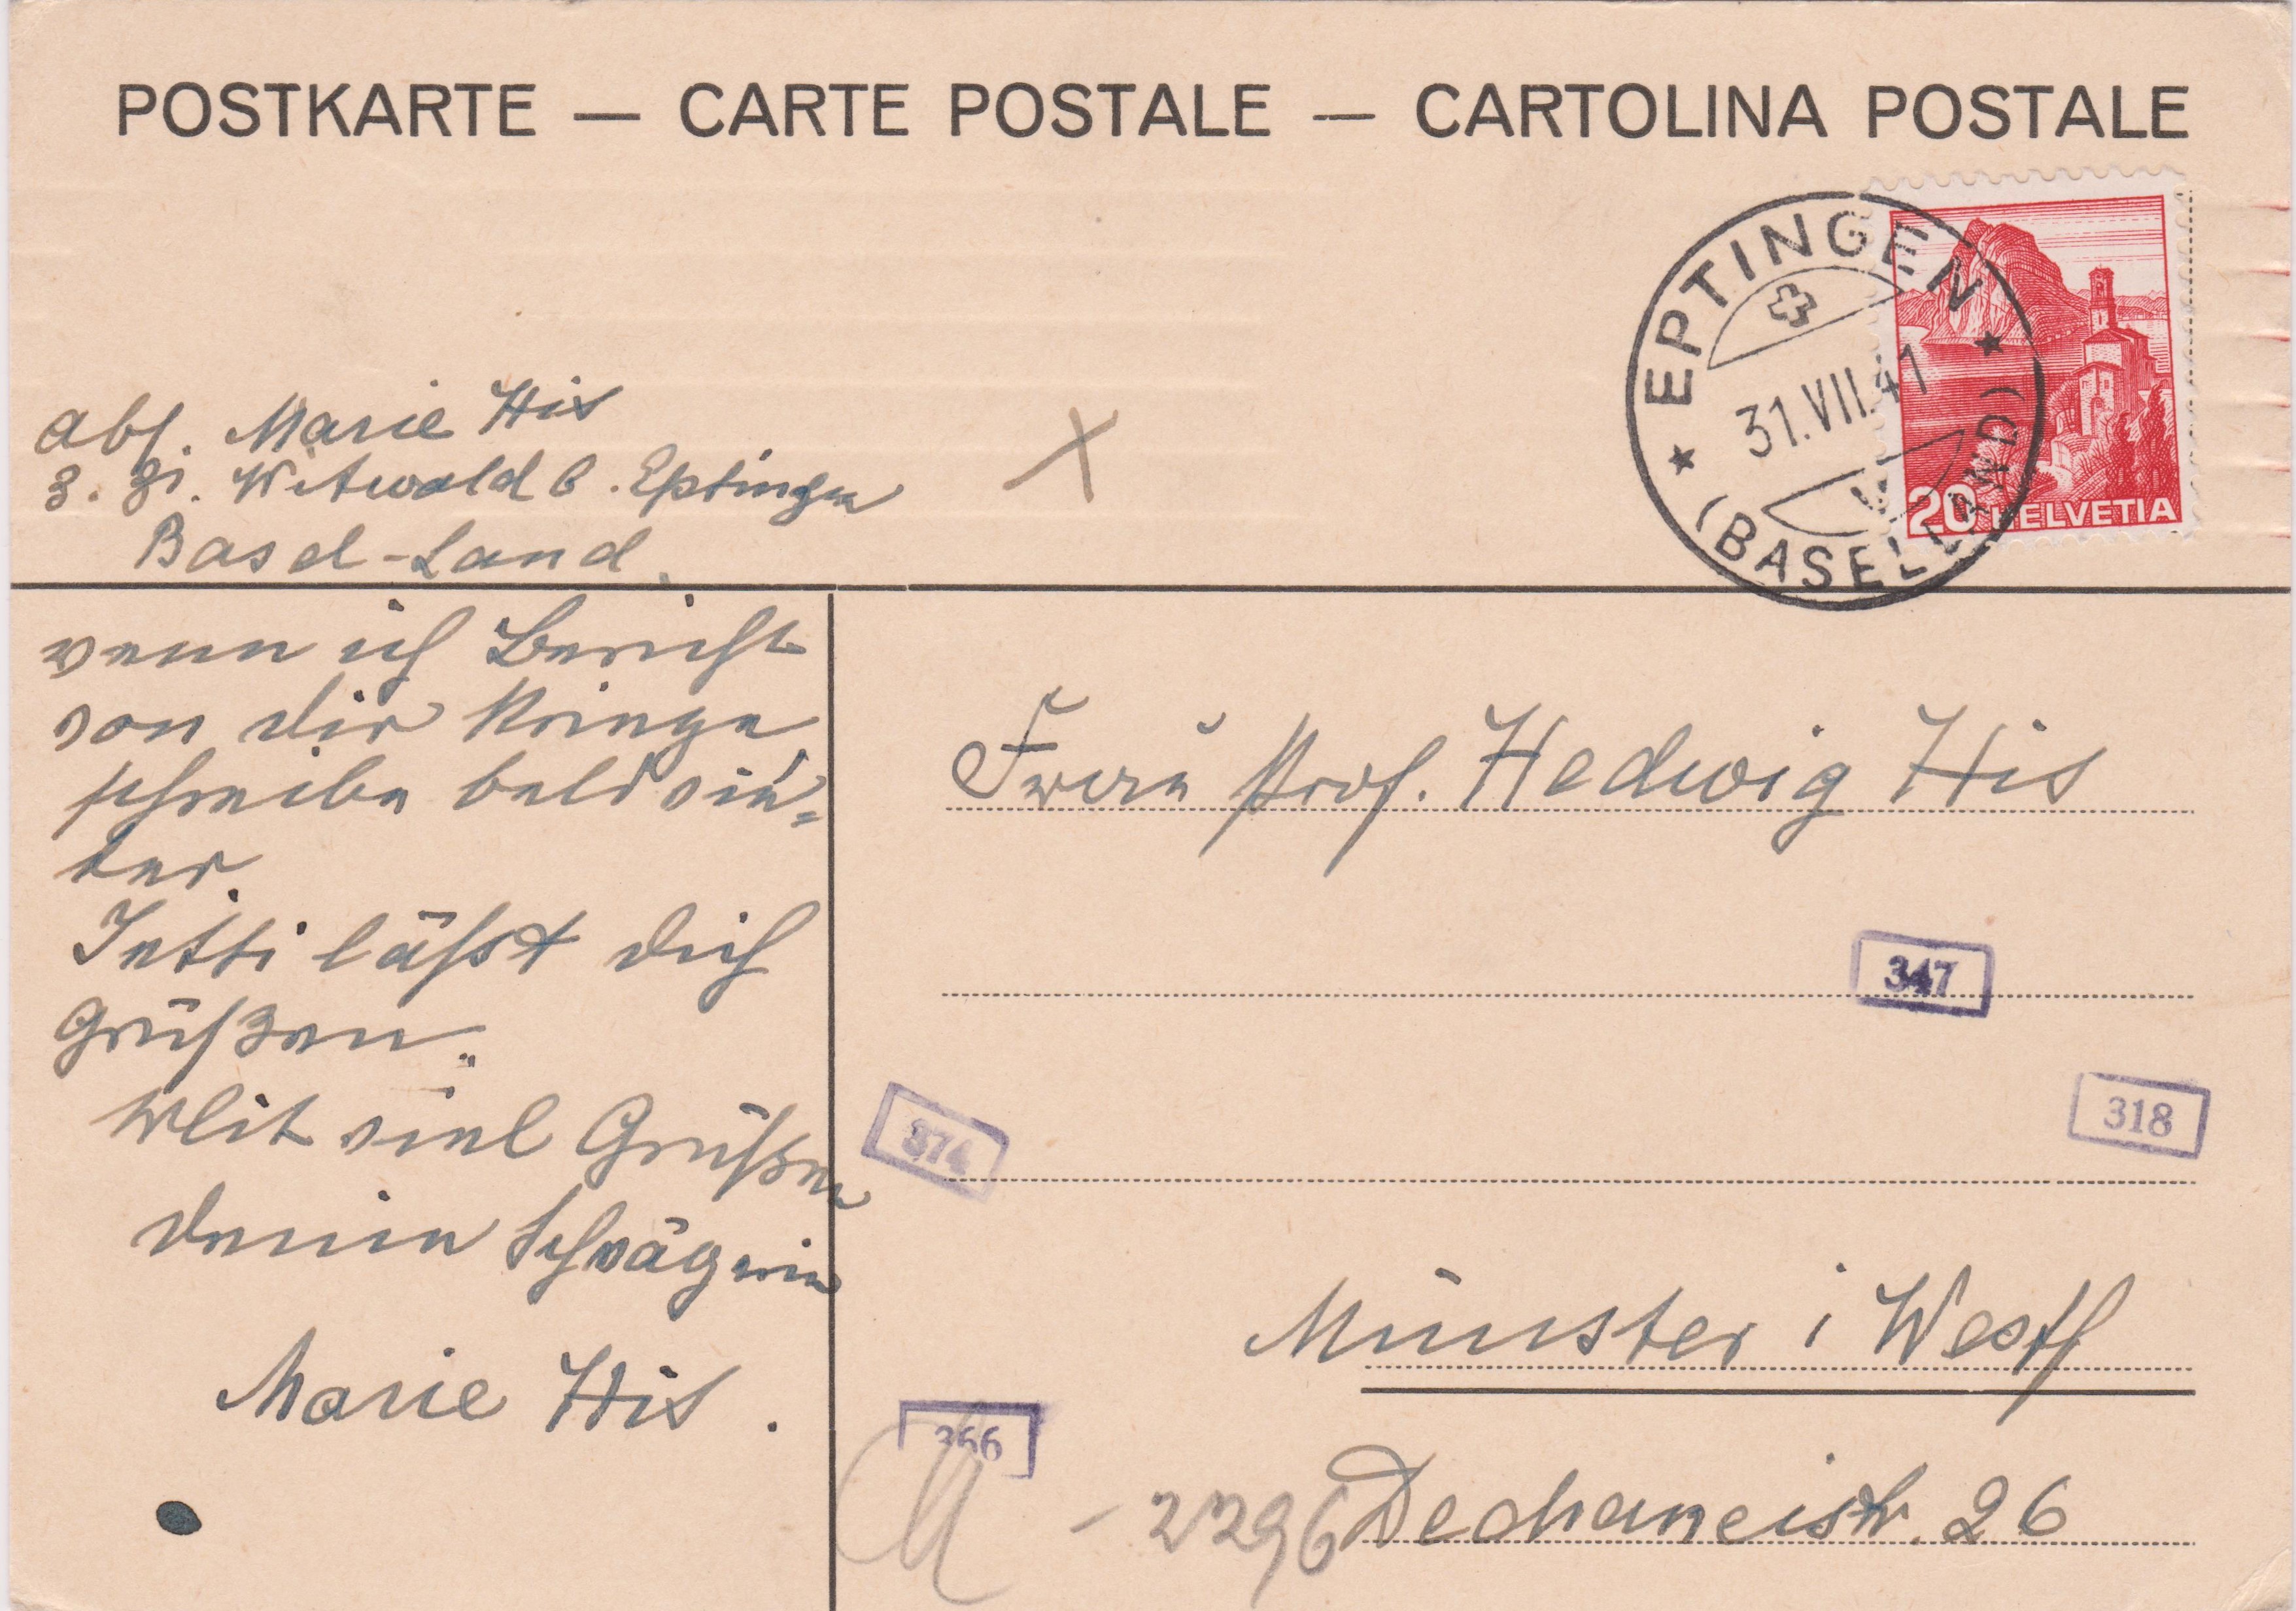 POSTKARTE — CARTE POSTALE — CARTOLINA POSTALE
EPTINGEN
31.VII.41
(BASELLAND)
20 HELVETIA
Abs. Marie His
z. Zi. Witwald b. Eptingen
Basel-Land.
wenn ich Bericht
von dir kriege
schreibe bald wie=
der
Jetti läßt dich
Grüßen.
Mit viel Grüßen
deine Schwägerin
Marie His.
Frau Prof. Hedwig His
347
318
374
Münster i Westf
366
- 2296
Dechaneistr. 26